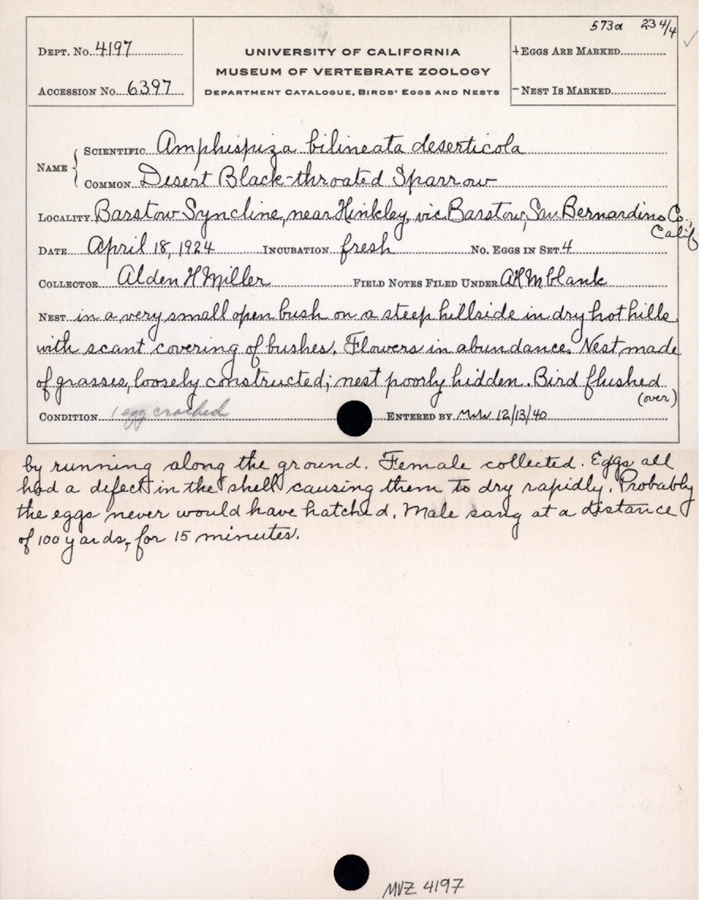 573a 234/4
DEPT. No. 4197
ACCESSION No. 6397
UNIVERSITY OF CALIFORNIA
MUSEUM OF VERTEBRATE ZOOLOGY
DEPARTMENT CATALOGUE, BIRDS' EGGS AND NESTS
+EGGS ARE MARKED
-NEST IS MARKED
NAME
SCIENTIFIC Amphispiza bilineata deserticola
COMMON Desert Black-throated Sparrow
LOCALITY Barstow Syncline, near Hinkley, vic. Barstow, San Bernardino Co.,
Calif
DATE April 18, 1924 INCUBATION fresh No. EGGS IN SET 4
COLLECTOR Alden H Miller FIELD NOTES FILED UNDER AHM blank
NEST in a very small open bush on a steep hillside in dry hot hills
with scant covering of bushes. Flowers in abundance. Nest made
of grasses, loosely constructed; nest poorly hidden. Bird flushed
(over)
CONDITION 1 egg cracked ENTERED BY 12/13/40
by running along the ground. Female collected. Eggs all
had a defect in the shell causing them to dry rapidly. Probably
the eggs never would have hatched. Male sang at a distance
of 100 yards, for 15 minutes.
MVZ 4197